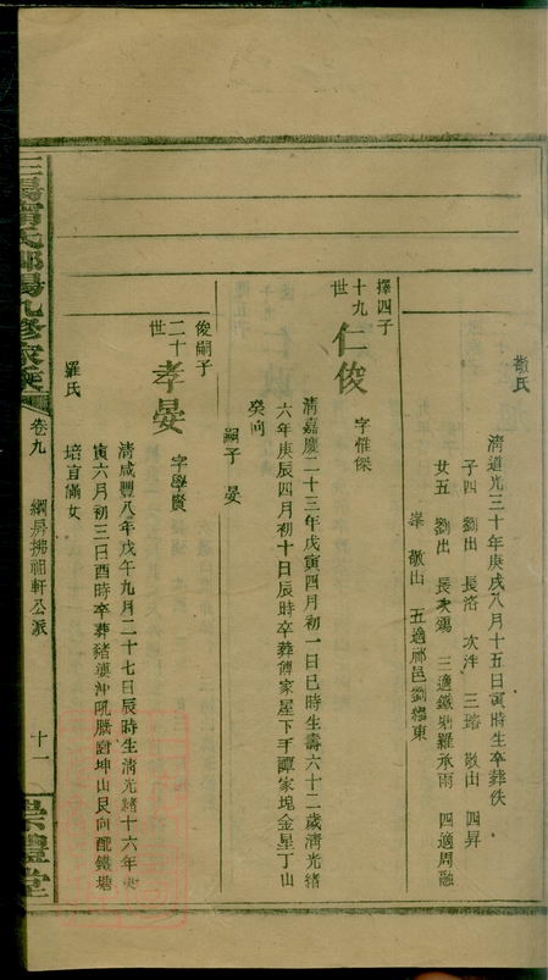 敬氏
清道光三十年庚戌八月十五日寅時生卒葬佚
子四 劉出 長洛 次汼 三瑢 敬出 四昇
女五 劉出 長次殤 三適鐵塘羅承雨 四適周融
峯 敬出 五適邵邑劉穆東
擇四子
十九世
仁俊 字惟傑
清嘉慶二十三年戊寅四月初一日巳時生壽六十二歲清光緒
六年庚辰四月初十日辰時卒葬傅家屋下手譚家塊金星丁山
癸向
嗣子 晏
俊嗣子
二十世
孝晏 字學賢
清咸豐八年戊午九月二十七日辰時生清光緒十六年庚
寅六月初三日酉時卒葬豬婆沖吼 坤山艮向配鐵塘
羅氏 培直滿女
氏邵陽九修家乘
卷九 綱房拂祖軒公派 十一
崇禮堂